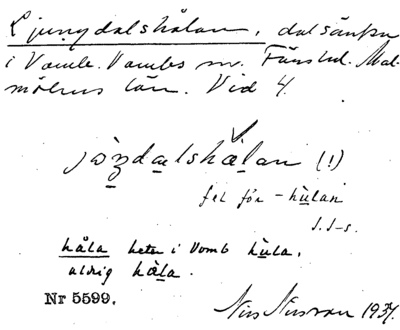 Ljungdalshålan, dalsänka
i Vomb. Vombs sn. Färs hd. Mal-
möhus län. Vid 4.
jɔ̀ŋdalshålan (!)
fel för -hulan
I. I-s.
håla heter i Vomb hula,
aldrig håla.
Nr 5599.
Nils Nilsson 1937.